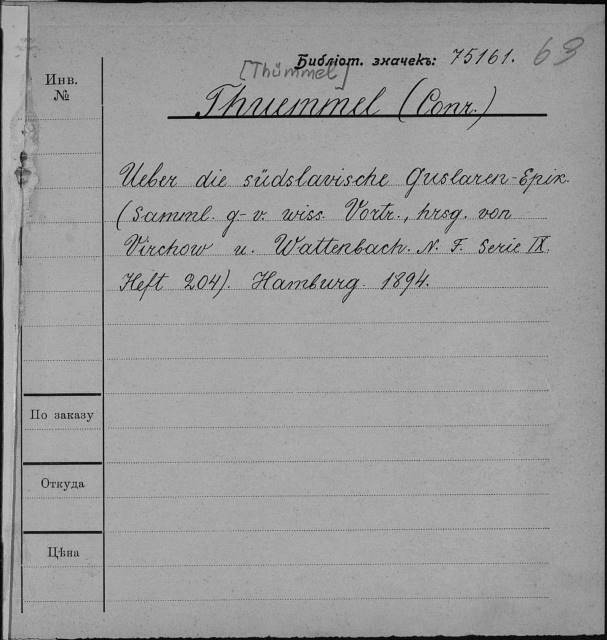 Библіот. значекъ: 75161. 63
[Thümmel]
Инв.
№
Thuemmel (Conr.)
Ueber die südslavische Guslaren-Epik.
(Samml. g.-v. wiss. Vortr., hrsg. von
Virchow u. Wattenbach. N. F. Serie IX.
Heft 204). Hamburg. 1894.
По заказу
Откуда
Цѣна